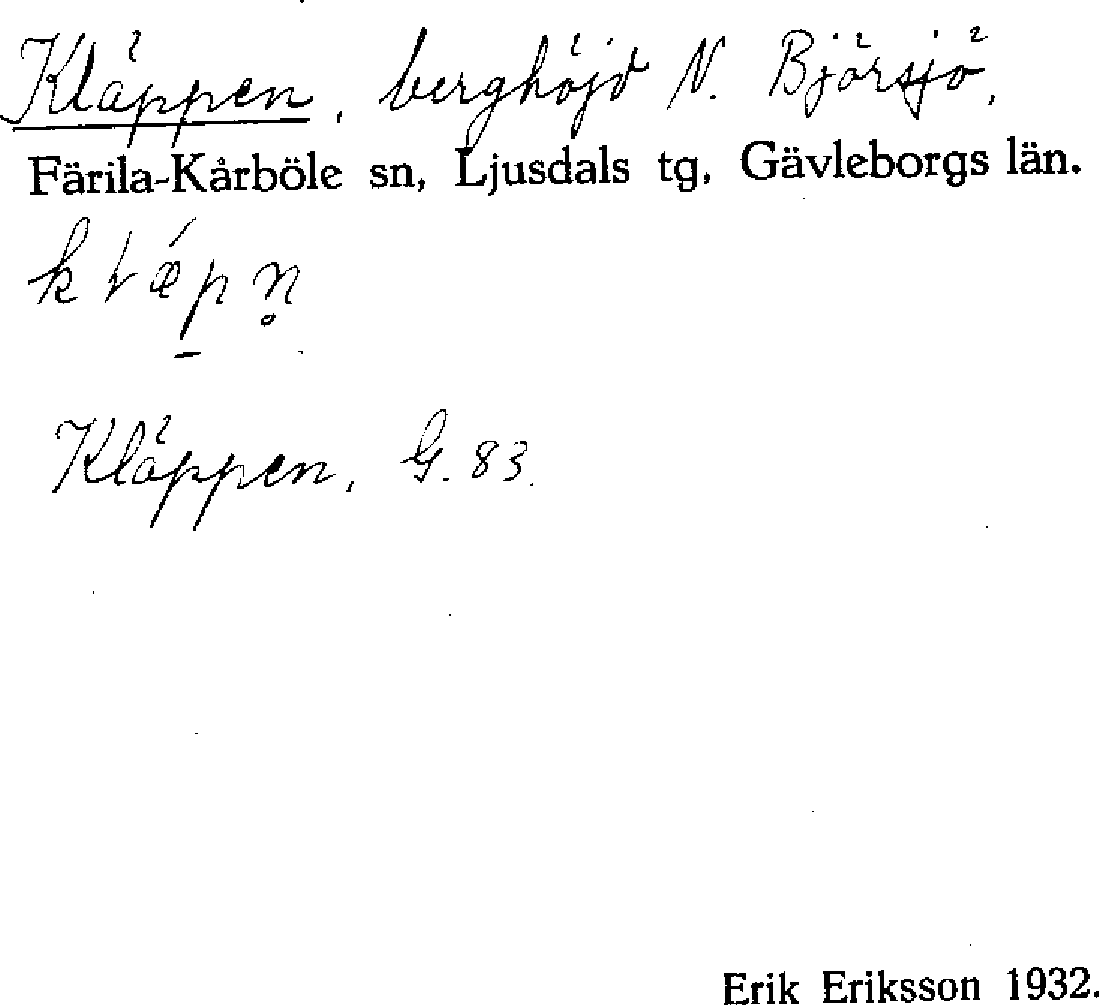 Kläppen, berghöjd N. Björsjö,
Färila-Kårböle sn, Ljusdals tg, Gävleborgs län.
kɫǽp̠n̥
Kläppen, G. 83.
Erik Eriksson 1932.